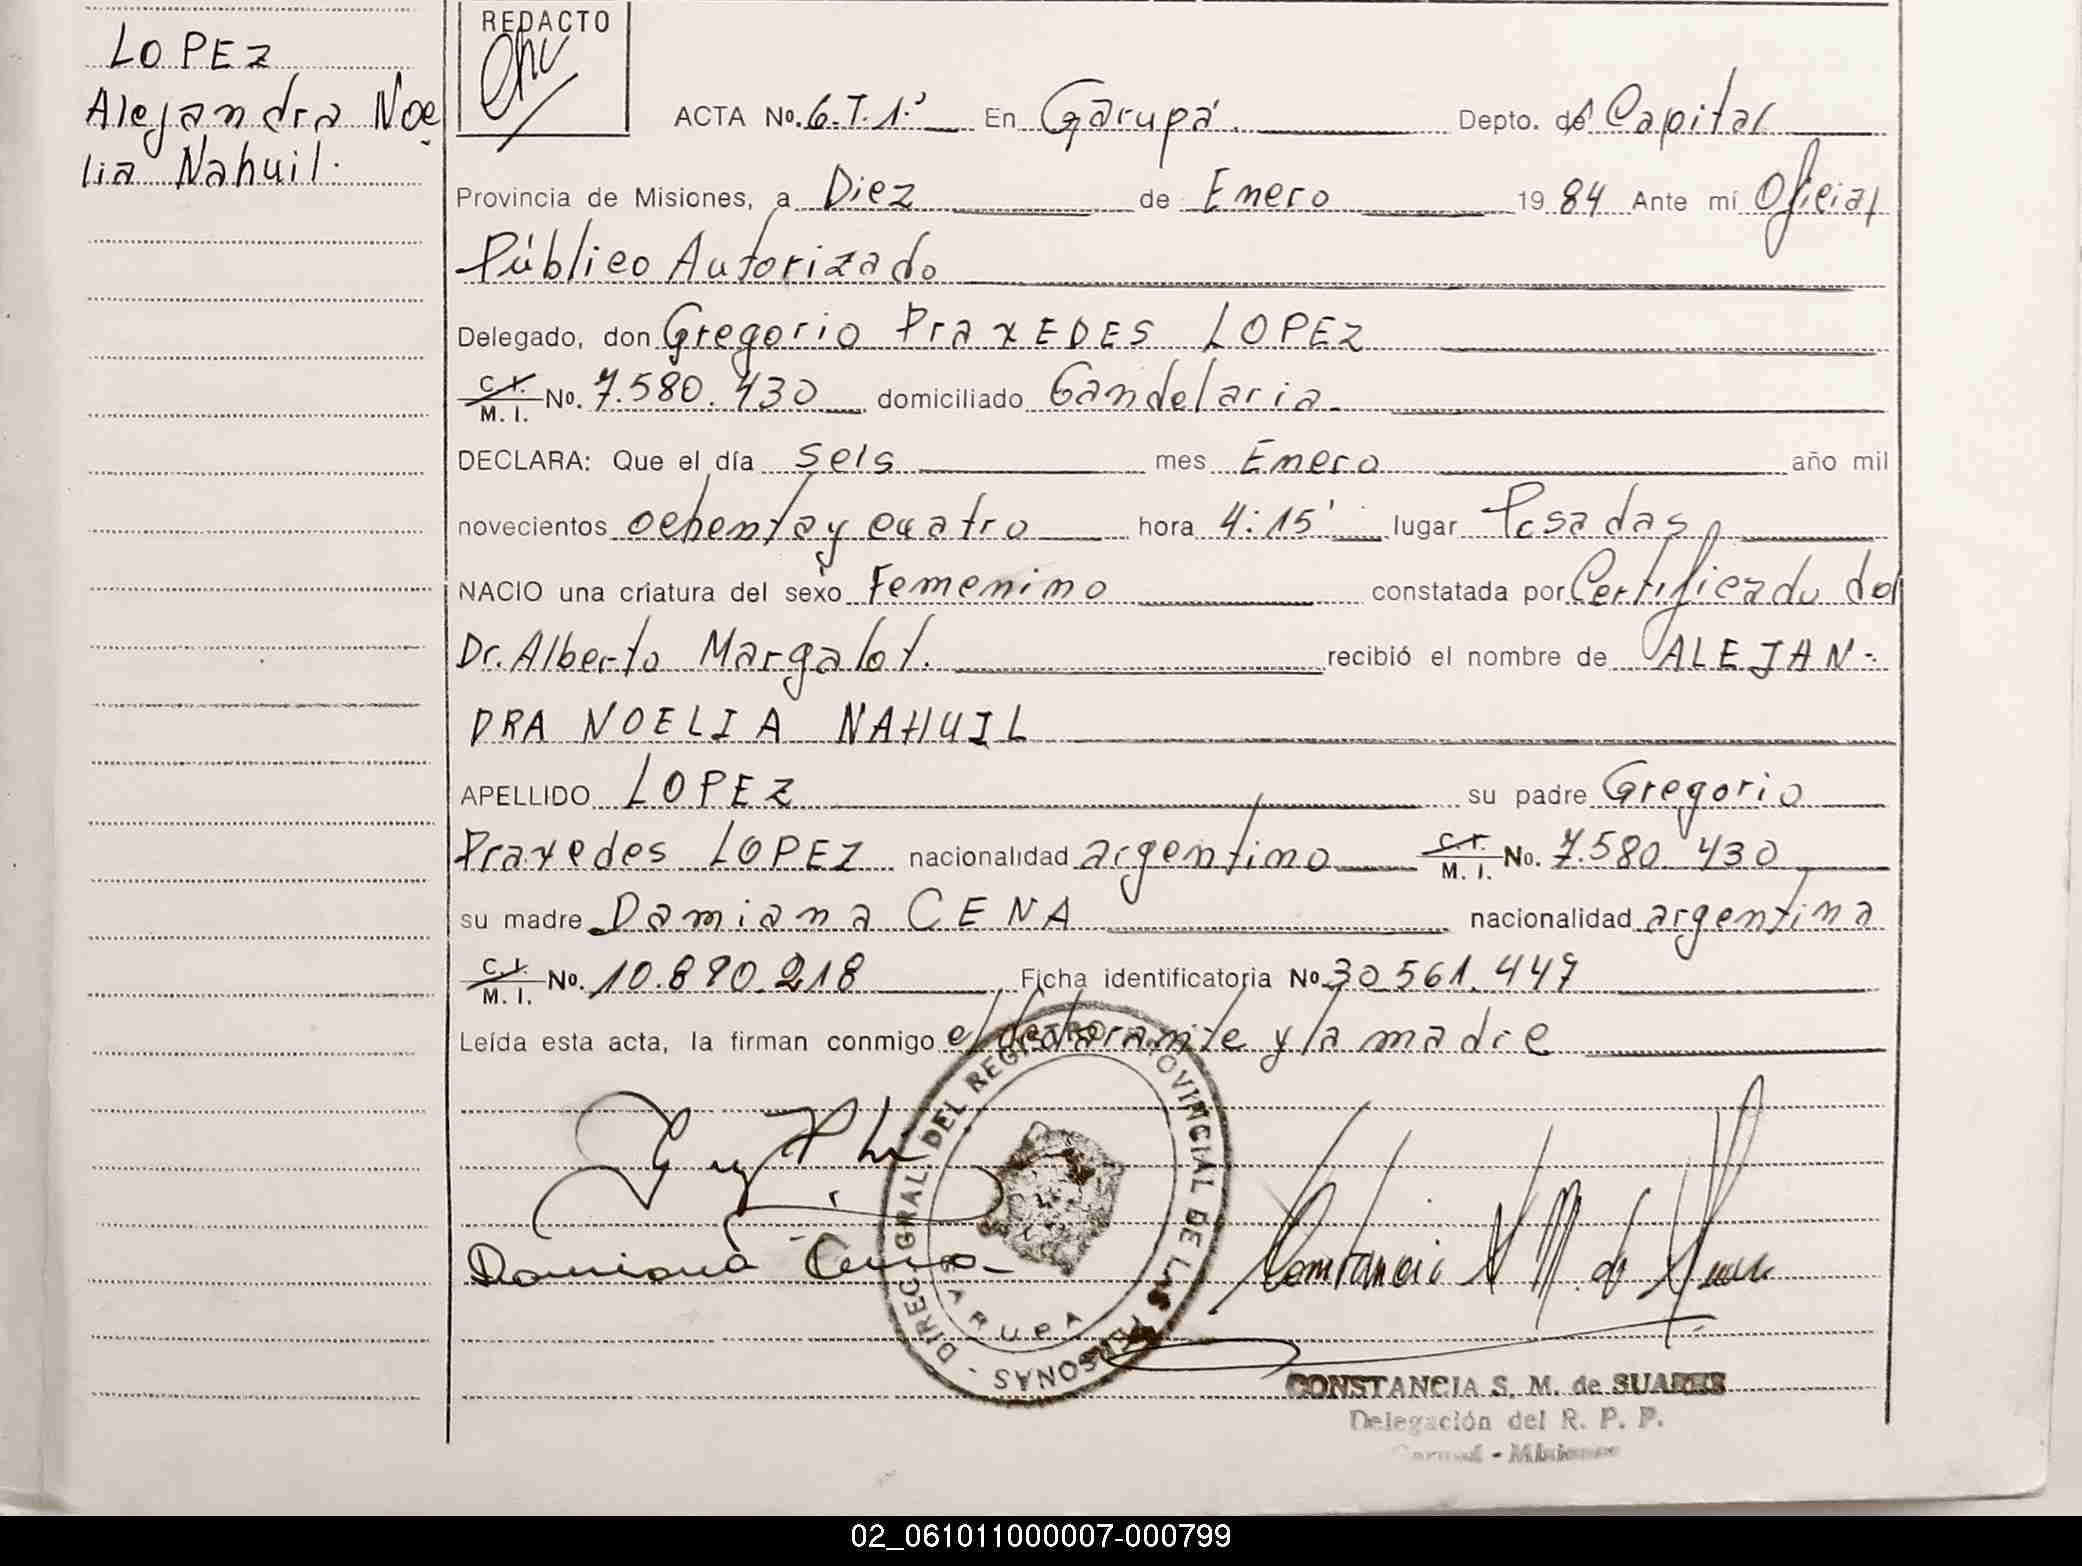 LOPEZ
Alejandra Noe
lia Nahuil.
REDACTO
ACTA No. 6.T.1.° En Garupá. Depto. de Capital
Provincia de Misiones, a Diez de Enero 1984 Ante mí Oficial
Público Autorizado
Delegado, don Gregorio PraxEDES LOPEZ
C. I. M. I. No. 7.580.430 domiciliado Candelaria
DECLARA: Que el día seis mes Enero año mil
novecientos ochenta y cuatro hora 4:15' lugar Posadas
NACIO una criatura del sexo Femenino constatada por Certificado del
Dr. Alberto Margalot. recibió el nombre de ALEJAN-
DRA NOELIA NAHUIL
APELLIDO LOPEZ su padre Gregorio
Praxedes LOPEZ nacionalidad argentino C. I. M. I. No. 7.580.430
su madre Damiana CENA nacionalidad argentina
C. I. M. I. No. 10.890.218 Ficha identificatoria No 30.561.447
Leída esta acta, la firman conmigo el declarante y la madre
Damiana Cena
DIREC. GRAL. DEL REGISTRO PROVINCIAL DE LAS PERSONAS -
GARUPA
CONSTANCIA S. M. de SUARES
Delegación del R. P. P.
- Misiones
02_061011000007-000799